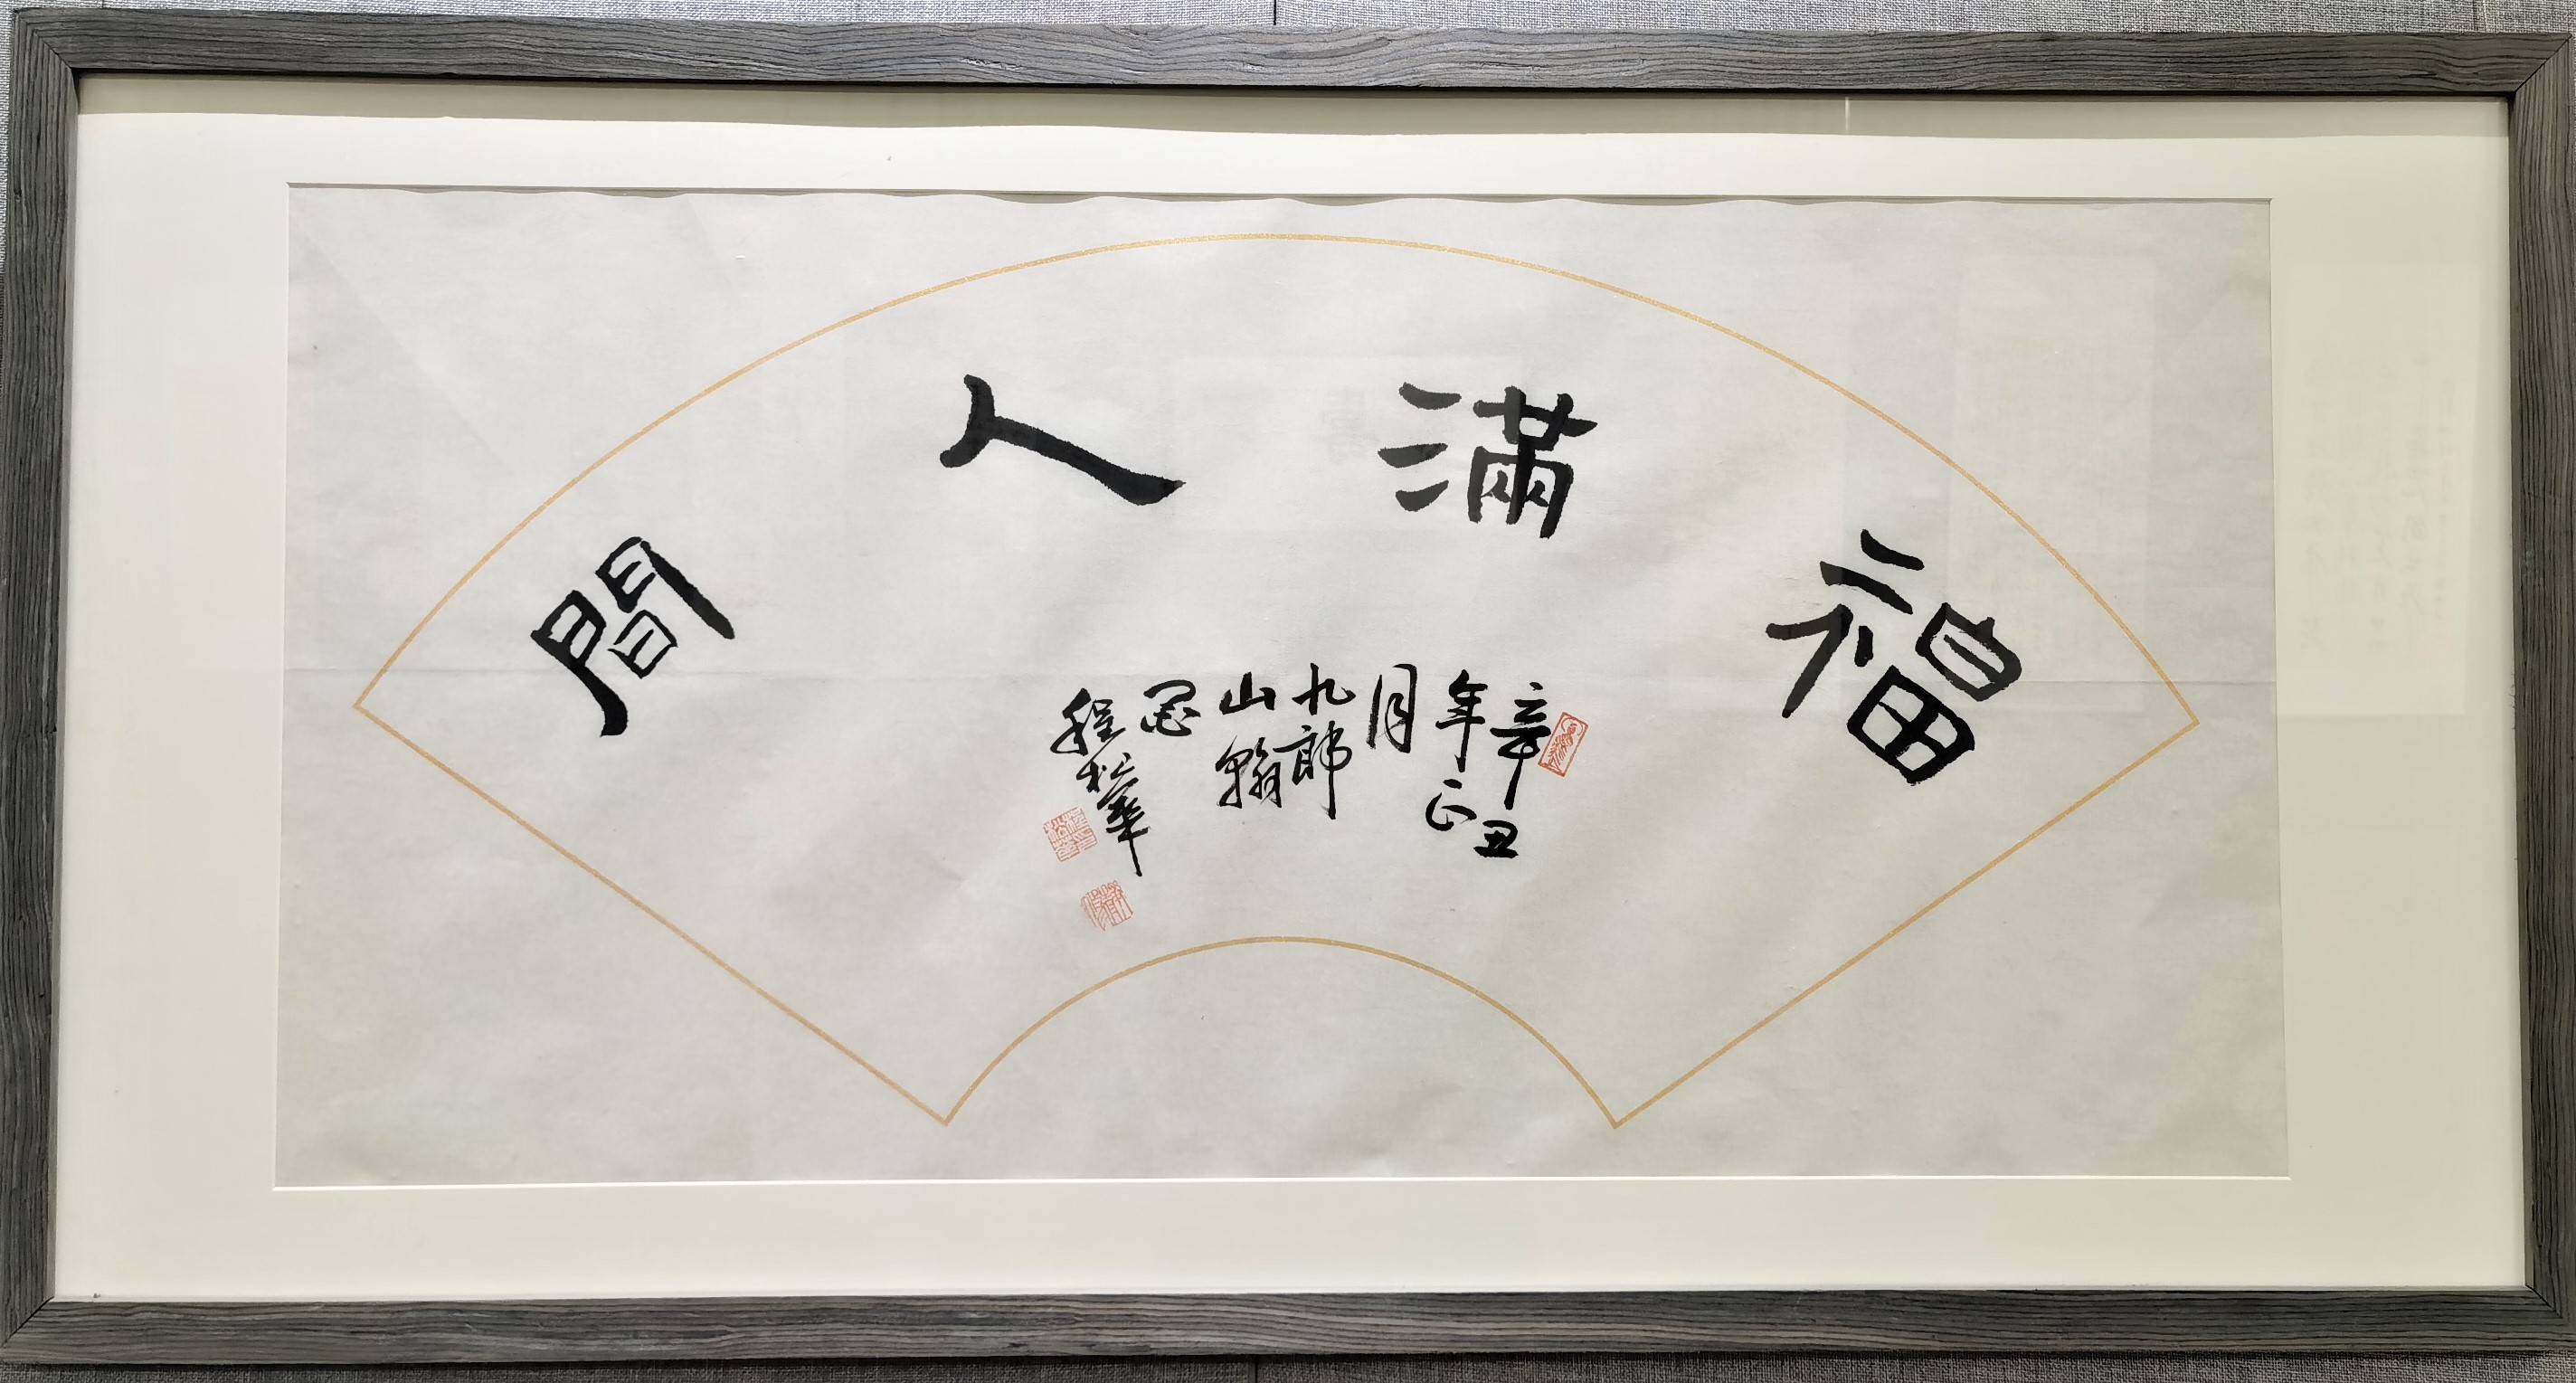 福滿人間
辛丑
年正
月
九郎
山翰
墨
程松華